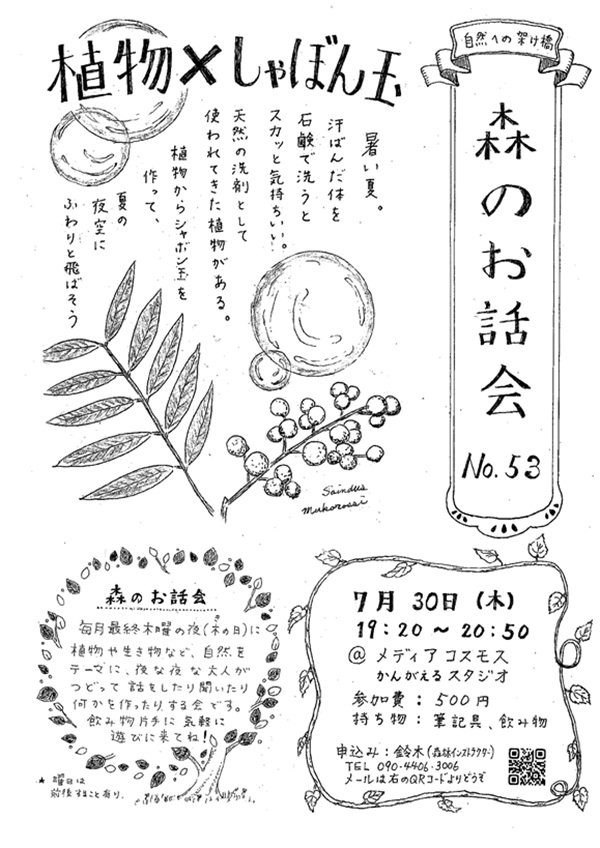 自然への架け橋
森のお話会
No.53
植物×しゃぼん玉
暑い夏。
汗ばんだ体を
石鹸で洗うと
スカッと気持ちいい。
天然の洗剤として
使われてきた植物がある。
植物からシャボン玉を
作って、
夏の
夜空に
ふわりと飛ばそう
Saindus
mukorossi
森のお話会
毎月最終木曜の夜(木の日)に
植物や生き物など、自然を
テーマに、夜な夜な大人が
つどって話をしたり聞いたり
何かを作ったりする会です。
飲み物片手に気軽に
遊びに来てね!
★曜日は
前後すること有り.
7月30日(木)
19:20～20:50
@メディアコスモス
かんがえるスタジオ
参加費:500円
持ち物:筆記具、飲み物
申込み:鈴木(森林インストラクター)
TEL 090-4406-3006
メールは右のQRコードよりどうぞ